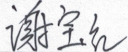 谢宝红